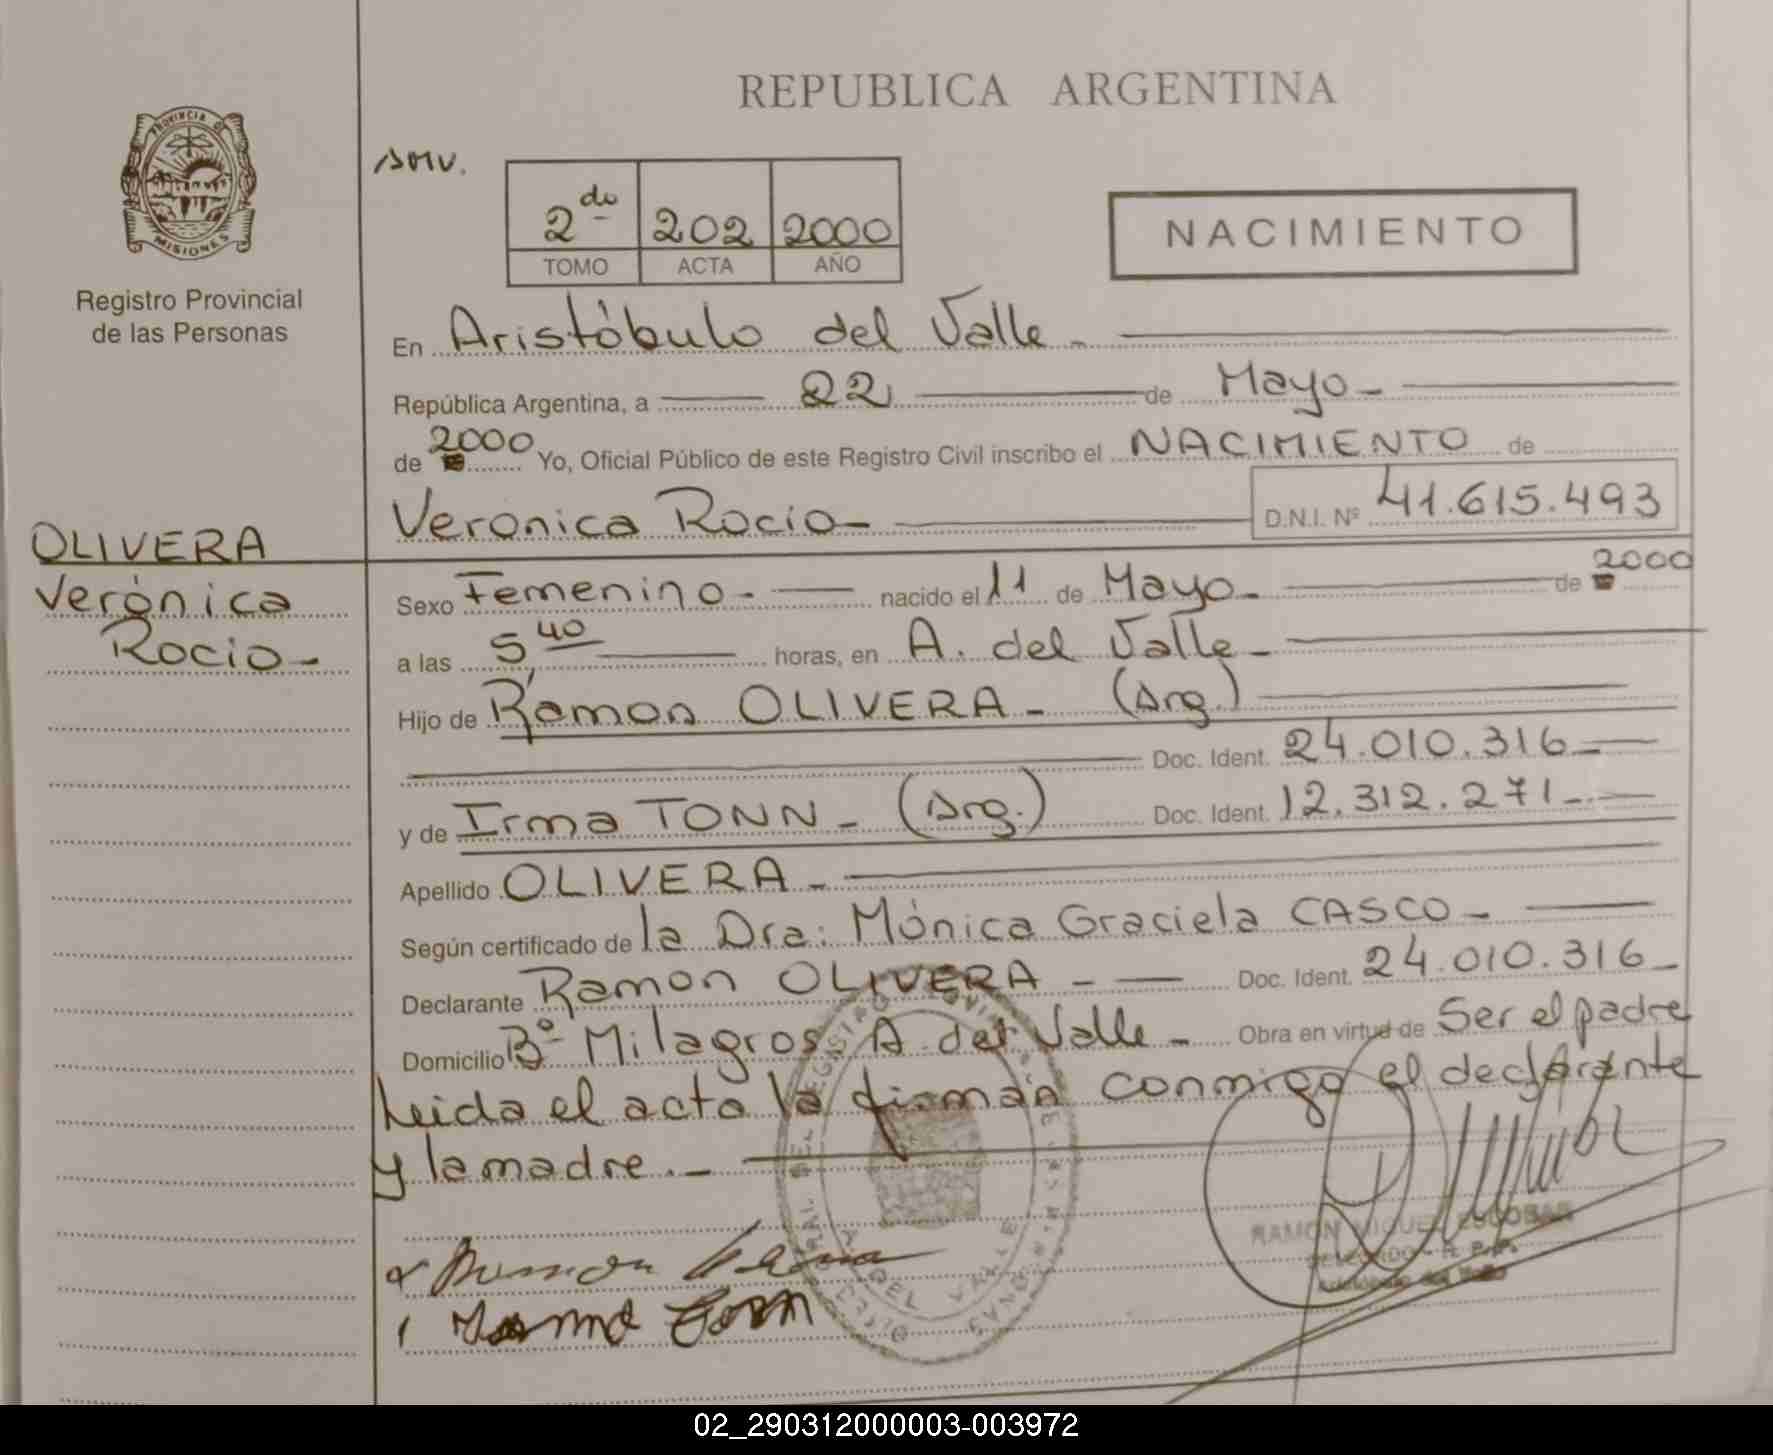 REPUBLICA ARGENTINA
PROVINCIA DE
MISIONES
Registro Provincial
de las Personas
2do 202 2000
TOMO ACTA AÑO
NACIMIENTO
En Aristóbulo del Valle -
República Argentina, a 22 de Mayo -
de 2000 Yo, Oficial Público de este Registro Civil inscribo el NACIMIENTO de
Veronica Rocio - D.N.I. Nº 41.615.493
OLIVERA
Verónica
Rocio -
Sexo Femenino - nacido el 11 de Mayo - de 2000
a las 5,40 horas, en A. del Valle -
Hijo de Ramon OLIVERA - (Arg.)
Doc. Ident. 24.010.316 -
y de Irma TONN - (Arg.) Doc. Ident. 12.312.271 -
Apellido OLIVERA -
Según certificado de la Dra: Mónica Graciela CASCO -
Declarante Ramon OLIVERA - Doc. Ident. 24.010.316 -
Domicilio Bº Milagros A. del Valle - Obra en virtud de Ser el padre
Leida el acta la firman conmigo el declarante
y la madre. -
RAMON MIGUEL ESCOBAR
DELEGADO - R. P. P.
Aristóbulo del Valle
02_290312000003-003972